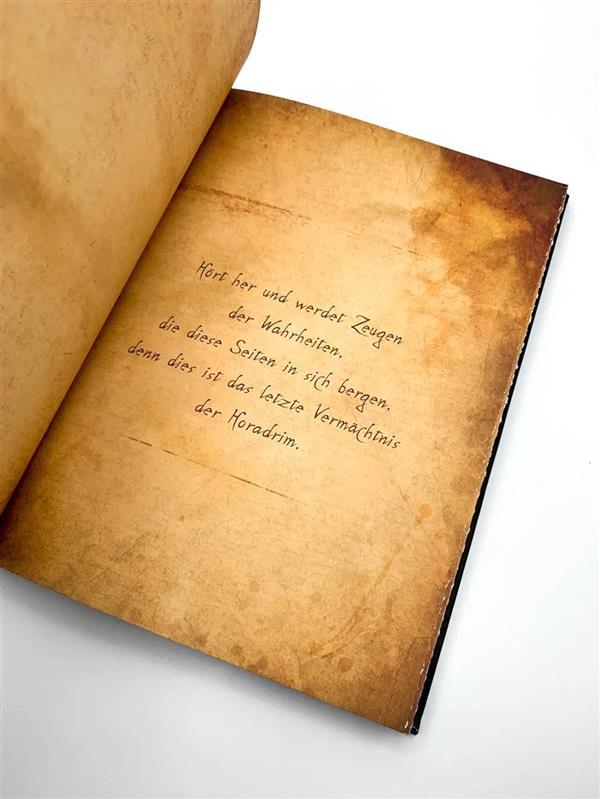 Hört her und werdet Zeugen
der Wahrheiten.
die diese Seiten in sich bergen.
denn dies ist das letzte Vermächtnis
der Horadrim.